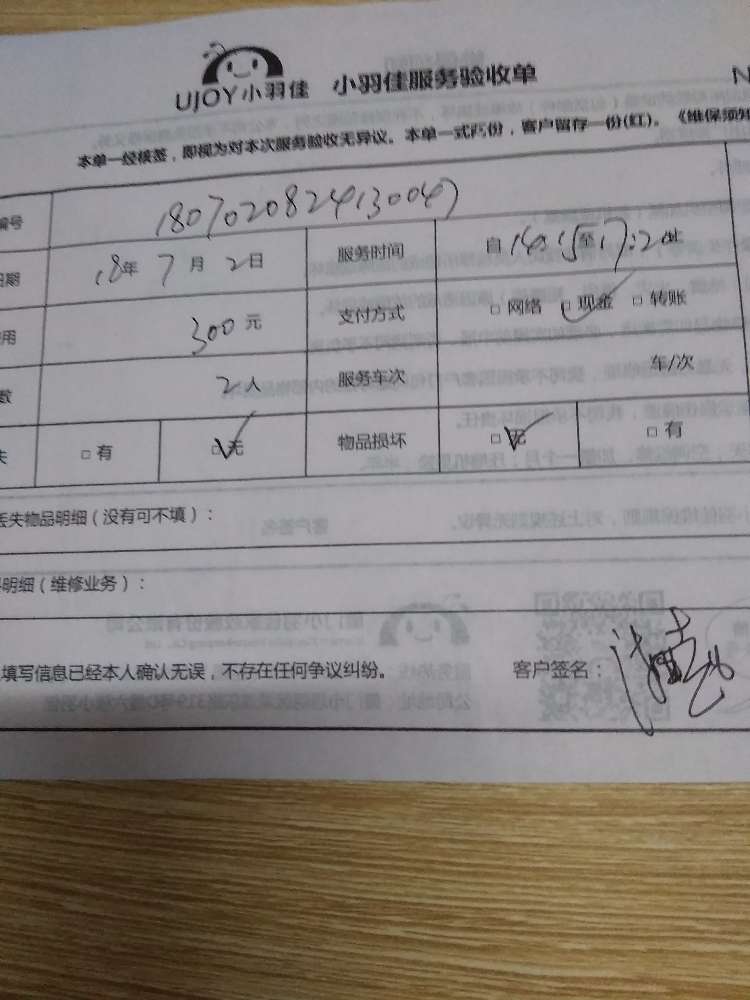 UJOY小羽佳 小羽佳服务验收单 N
本单一经核签，即视为对本次服务验收无异议。本单一式两份，客户留存一份(红)。《维保须知
编号 180702082413004
日期 18年 7月 2日 服务时间 自 至 17:20止
用 300元 支付方式 □ 网络 □ 现金 □ 转账
数 2人 服务车次 车/次
失 □ 有 □ 无 物品损坏 □ 无 □ 有
丢失物品明细（没有可不填）：
明细（维修业务）：
填写信息已经本人确认无误，不存在任何争议纠纷。 客户签名：